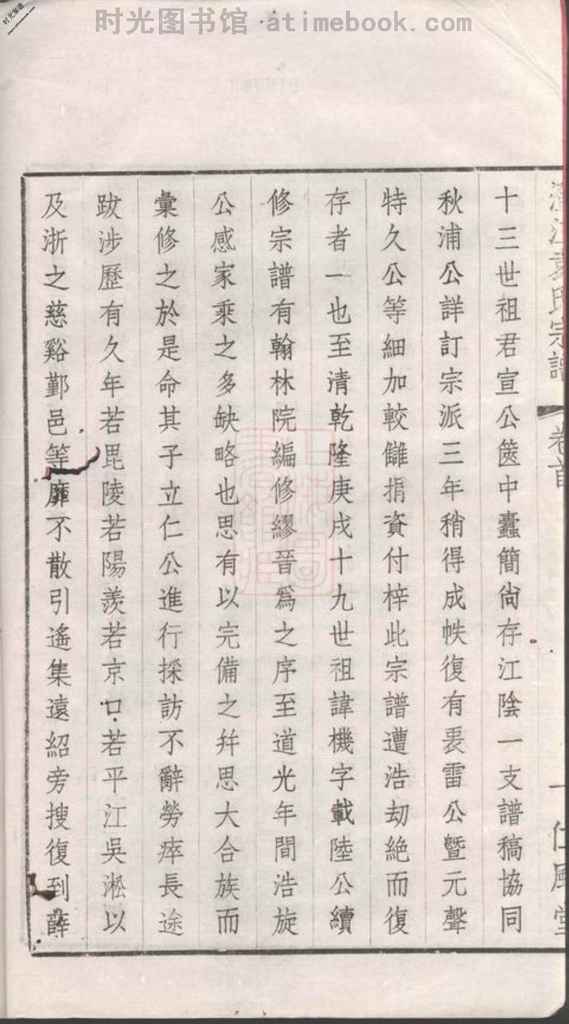 时光图书馆 atimebook.com
氏宗譜 卷首 一 仁風堂
十三世祖君宣公篋中蠹簡尙存江陰一支譜稿協同
秋浦公詳訂宗派三年稍得成帙復有裴雷公曁元聲
特久公等細加較讎捐資付梓此宗譜遭浩劫絶而復
存者一也至清乾隆庚戌十九世祖諱機字載陸公續
修宗譜有翰林院編修繆晉爲之序至道光年間浩旋
公感家乘之多缺略也思有以完備之幷思大合族而
彙修之於是命其子立仁公進行採訪不辭勞瘁長途
跋涉歷有久年若毘陵若陽羨若京口若平江吳淞以
及浙之慈谿鄞邑等靡不散引遙集遠紹旁搜復到薛